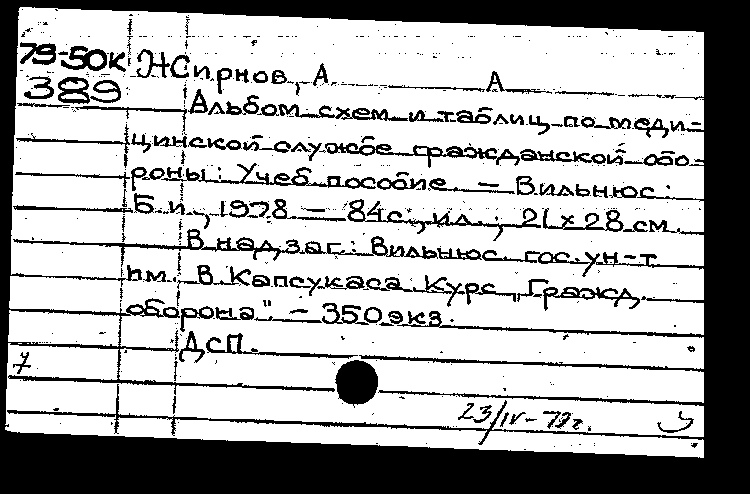 79-50К Жирнов, А А
389
Альбом схем и таблиц по меди-
цинской службе гражданской обо-
роны: Учеб. пособие. — Вильнюс:
Б.и., 1978 — 84с., ил.; 21×28 см.
В надзаг.: Вильнюс. гос. ун-т
им. В. Капсукаса. Курс „Гражд.
оборона". — 350 экз.
ДСП.
23/IV-79г.